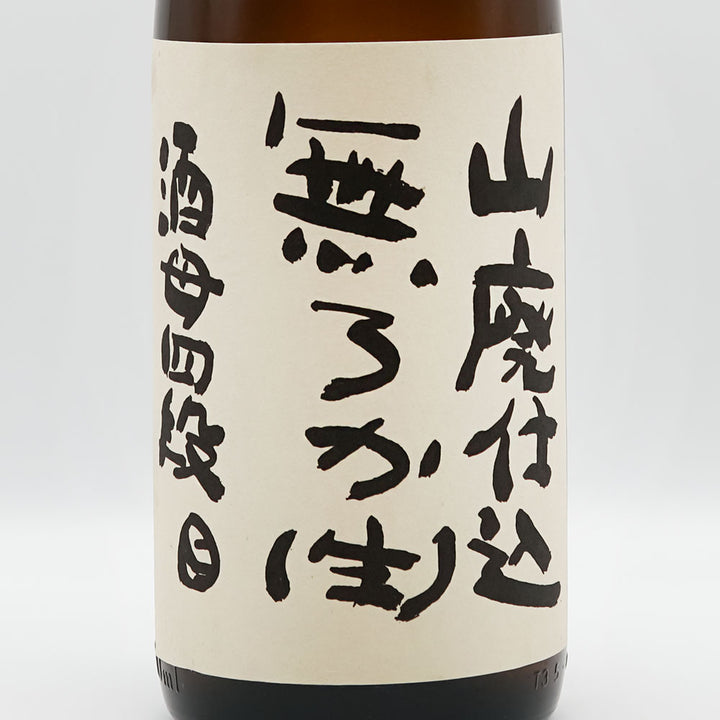 山廃仕込
無ろか(生)
酒母四段
ml